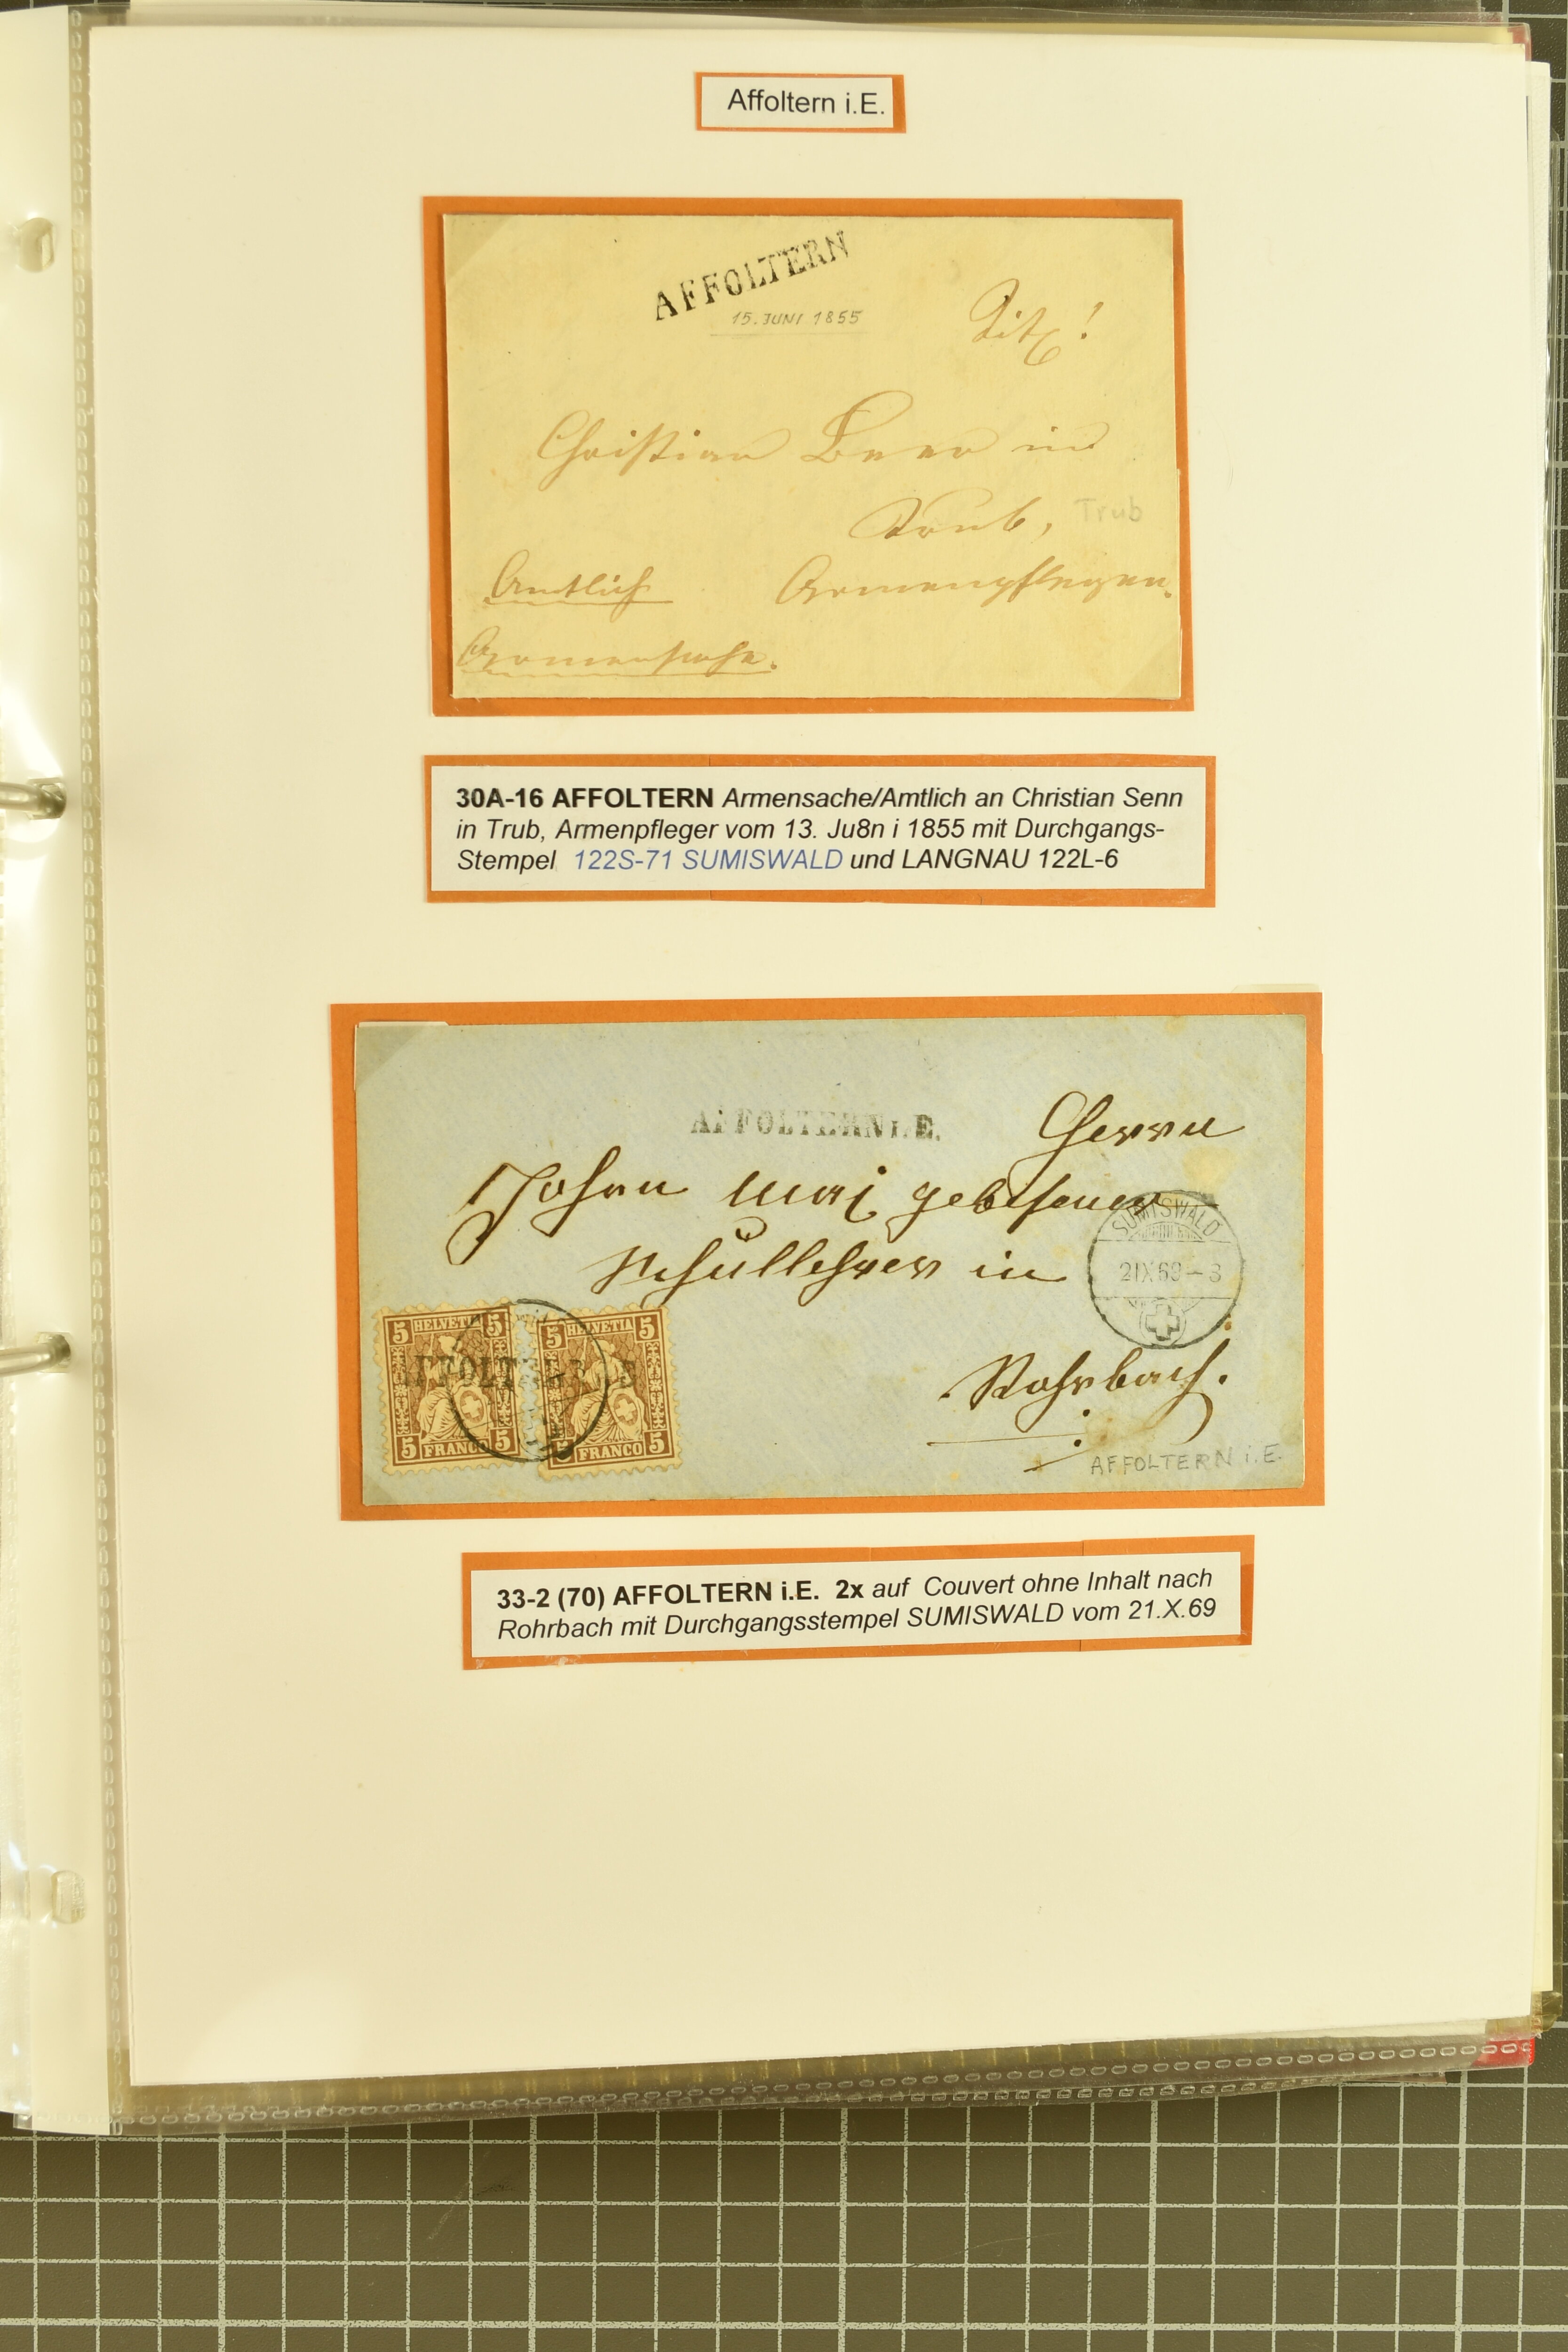 Affoltern i.E.
AFFOLTERN
15. JUNI 1855
Tit!
Christian Beer in
Trub, Trub
Amtlich Armenpfleger.
Armensache.
30A-16 AFFOLTERN Armensache/Amtlich an Christian Senn
in Trub, Armenpfleger vom 13. Ju8n i 1855 mit Durchgangs-
Stempel 122S-71 SUMISWALD und LANGNAU 122L-6
AFFOLTERN i. E. Herrn
Johan
Schullehrer in
SUMISWALD
21X69-3
5 HELVETIA 5
5 FRANCO 5
5 HELVETIA 5
5 FRANCO 5
AFFOLTERN
Rohrbach.
AFFOLTERN i. E.
33-2 (70) AFFOLTERN i.E. 2x auf Couvert ohne Inhalt nach
Rohrbach mit Durchgangsstempel SUMISWALD vom 21.X.69